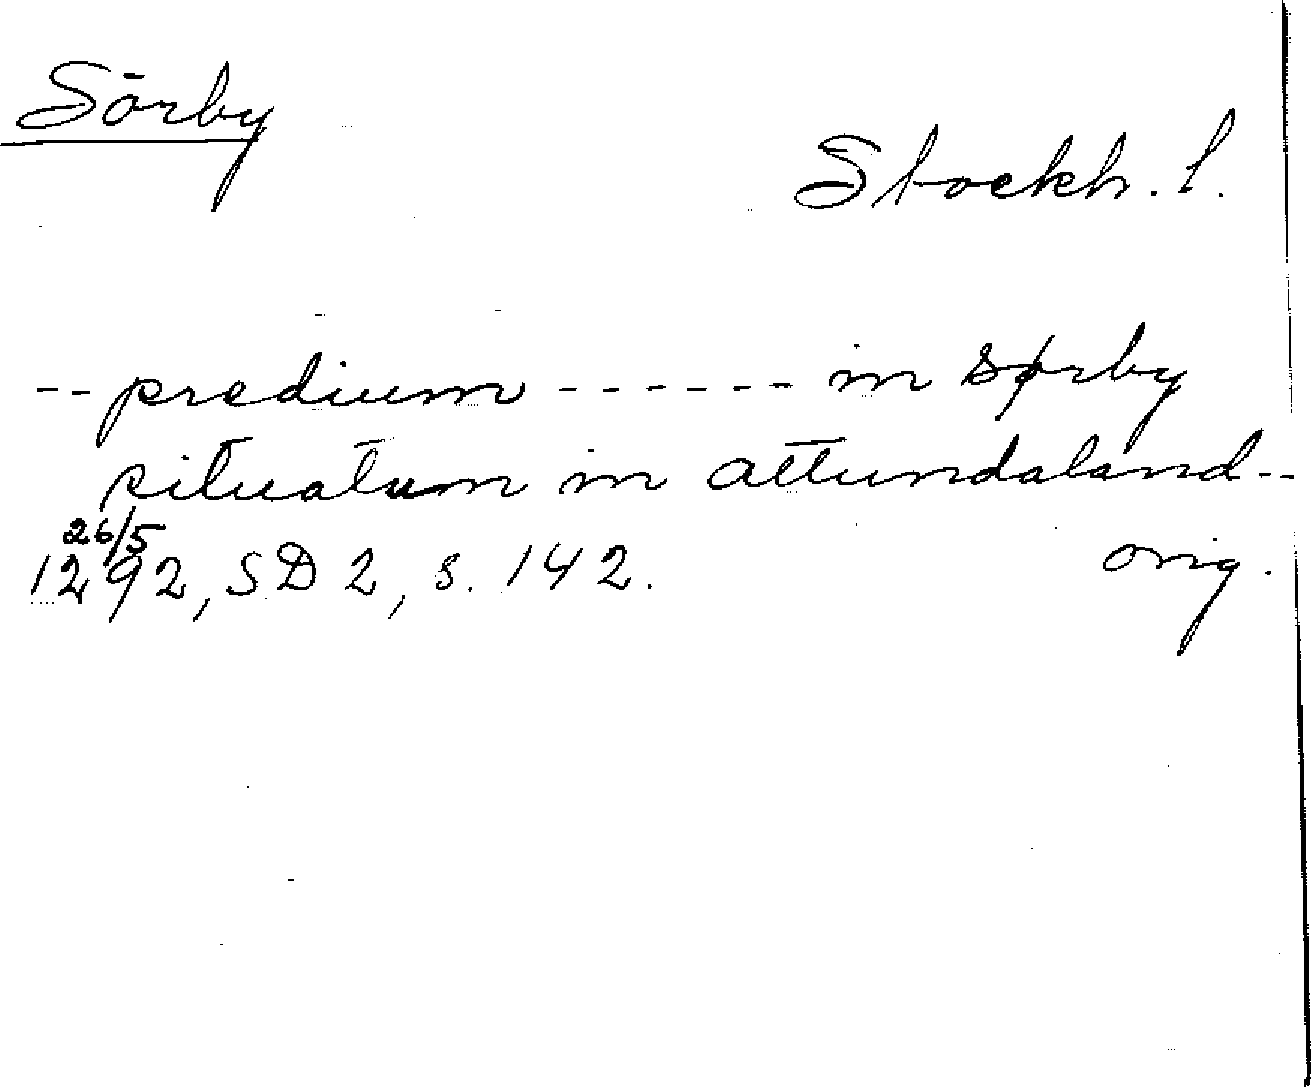 Sörby
Stockh. l.
-- predium ------ in sørby
situatum in attundaland--
26/5
1292, SD 2, s. 142. orig.